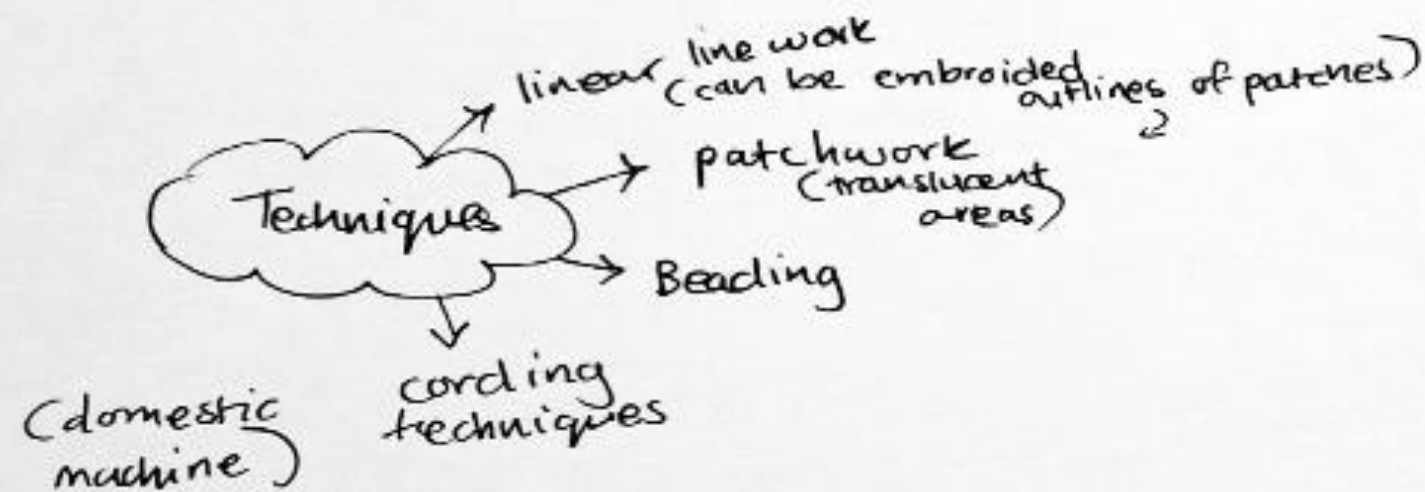 linear line work
(can be embroided
outlines of patches)
patchwork
(translucent
areas)
Techniques
Beading
cording
techniques
(domestic
machine)